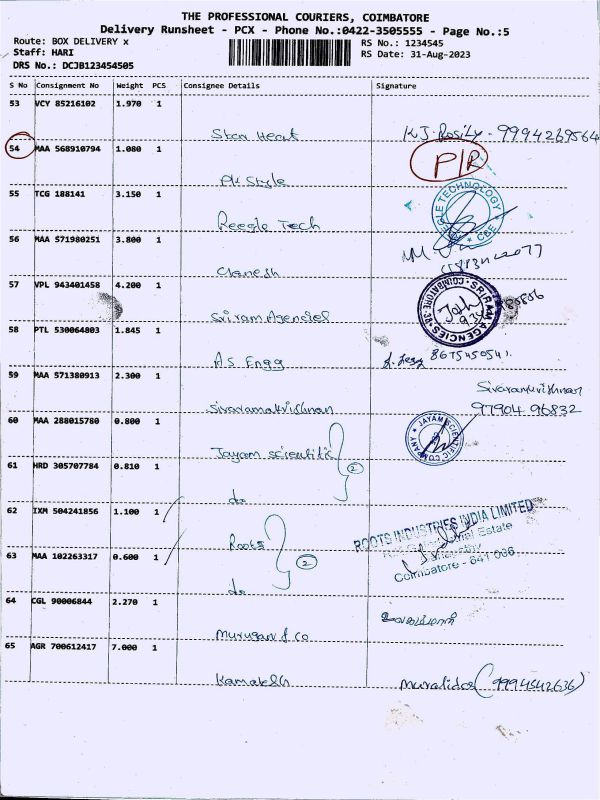 THE PROFESSIONAL COURIERS, COIMBATORE
Delivery Runsheet - PCX - Phone No.:0422-3505555 - Page No.:5
Route: BOX DELIVERY x RS No.: 1234545
Staff: HARI RS Date: 31-Aug-2023
DRS No.: DCJB123454505
S No Consignment No Weight PCS Consignee Details Signature
53 VCY 85216102 1.970 1
Star Heat KJ. Rosily - 9994269564
54 MAA 568910794 1.080 1 P/R
PK Style
55 TCG 188141 3.150 1 EGLE TECHNOLOGY * CBE *
Reegle Tech
56 MAA 571980251 3.800 1
Ganesh
57 VPL 943401458 4.200 1 SRIRAM AGENCIES COIMBATORE
Sriram Agencies
58 PTL 530064803 1.845 1
AS Engg 8675450541.
59 MAA 571380913 2.300 1 Sivaramakrishnan
Sivaramakrishnan 97904 96832
60 MAA 288015780 0.800 1 JAYAM SCIENTIFIC COMPANY
Jayam scientific
61 HRD 305707784 0.810 1 2
do
62 IXM 504241856 1.100 1 ROOTS INDUSTRIES INDIA LIMITED
Roots Estate
63 MAA 102263317 0.600 1 2 Coimbatore - 641 036
do
64 CGL 90006844 2.270 1
Murugan & co
65 AGR 700612417 7.000 1
Kamalesh Muralidos (9994542636)